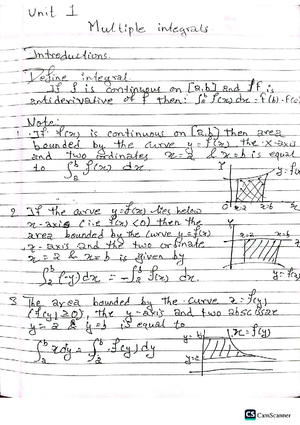 Unit 1
Multiple integrals
Introductions.
Define integral.
If f is continuous on [a,b] and if F is
antiderivative of f then: ∫ₐᵇ f(x) dx = f(b) - F(a)
Note:-
1. If f(x) is continuous on [a,b] then area
bounded by the curve y=f(x) the x-axis
and two ordinates x=a & x=b is equal
to ∫ₐᵇ f(x) dx
Y
y=f(x)
O x=a x=b x
2 If the curve y=f(x) lies below
x-axis (i.e f(x)<0) then the
area bounded by the curve y=f(x)
x-axis and the two ordinate
x=a & x=b is given by
∫ₐᵇ (-y)dx = -∫ₐᵇ f(x) dx.
Y
x=a x=b x
y=f(x)
3 The area bounded by the curve x=f(y)
(f(y)≥0), the y-axis and two abscissae
y=a & y=b is equal to
∫ₐᵇ x dy = ∫ₐᵇ f(y) dy
y=b
x=f(y)
y=a
CS CamScanner